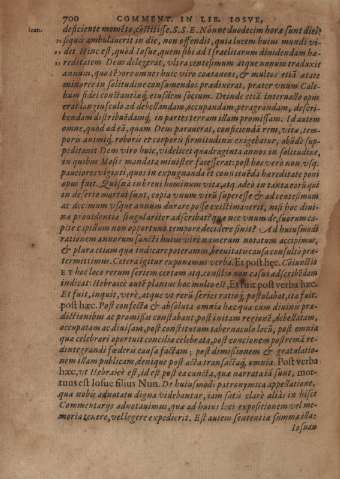 700 COMMENT. IN LIB. IOSVE,
Ioan. deficiente momẽto, cõstitisse, S.S.E. Nonne duodecim horæ sunt diei?
si quis ambulauerit in die, non offendit, quia lucem huius mundi vi-
det. Hinc est, quod Iosue, quem sibi ad Israëlitarum diuidendam hæ-
reditatem Deus delegerat, vltra centesimum atque vnnum traduxit
annum, quo tẽpore omnes huic viro coætaneos, & multos etiã ætate
minores in solitudine consumendos prædixerat, præter vnum Cale-
bum
fidei constantiæq́; eiusdem socium. Deinde etiã internallo opus
erat ad debellandam, occupandam, peragrandam, descri-
bendam distribuẽdamq́; in partes terram illam promissam. Id autem
omne, quod ad eã, quam Deus parauerat, conficiendã rem, vitæ, tem-
poris animiq́; roboris et corporis firmitudine exigebatur, abũdè sup-
peditauit Deus viro huic, videlicet quadraginta annos in solitudine,
in quibus Mosis mandata minister facesserat: post hæc verò non vsq;
pauciores viginti, quos in expugnanda et constituẽda hæreditate poni
opus fuit. Quin hominum vita, atq; adeò in tanta eorũ qui
in deserto mortui sunt, copia vnum virũ superesse & ad centesimum
ac decimum vsque annum durare, posse existimauerit, nisi hoc diui-
næ prouidentiæ singulariter adscribat? quæ nec vnum de suorum ca-
pite capillum non opportuno tempore decidere sinit? Ad huiusmodi
rationem annorum sancti huius viri numerum notatum accipimus,
& plura etiam quæ indicare poteramus, breuitatis causa consulto præ-
termittimus. Cetera igitur exponamus verba. Et post hæc. Coniunctio
ET hoc loco rerum seriem certam atq; consilio non casui adscribẽdam
indicat: Hebraicè autẽ planius hoc modo est, Et fuit post verba hæc.
Et fuit, inquit, verè, atque vt rerũ series ratioq́; postulabat, ita fuit.
post hæc. Post confecta & absoluta omnia hæc quæ cum diuinis præ-
dictionibus ac promissis constabant, post initam regionẽ, debellatam,
occupatam ac diuisam, post constitutum tabernaculo locũ, post omnia
quæ celebrari oportuit concilia celebrata, post concionem postremã re-
diintegrandi fœderis causa factam; post dimissionem & gratulatio-
nem illam publicam, denique post acta transactaq́; omnia. Post verba
hæc, vt Hebraicè est, id est post ea cuncta, quæ narrata iã sunt, mor-
tuus est Iosue filius Nun. De huiusmodi patronymica appellatione,
quæ nobis adnotatu digna videbantur, iam satis clarè aliàs in hisce
Commentarijs adnotauimus, quæ ad huius loci expositionem vel me-
moria tenere, vel legere expedierit. Est autem sententiæ summa illa:
Iosuam